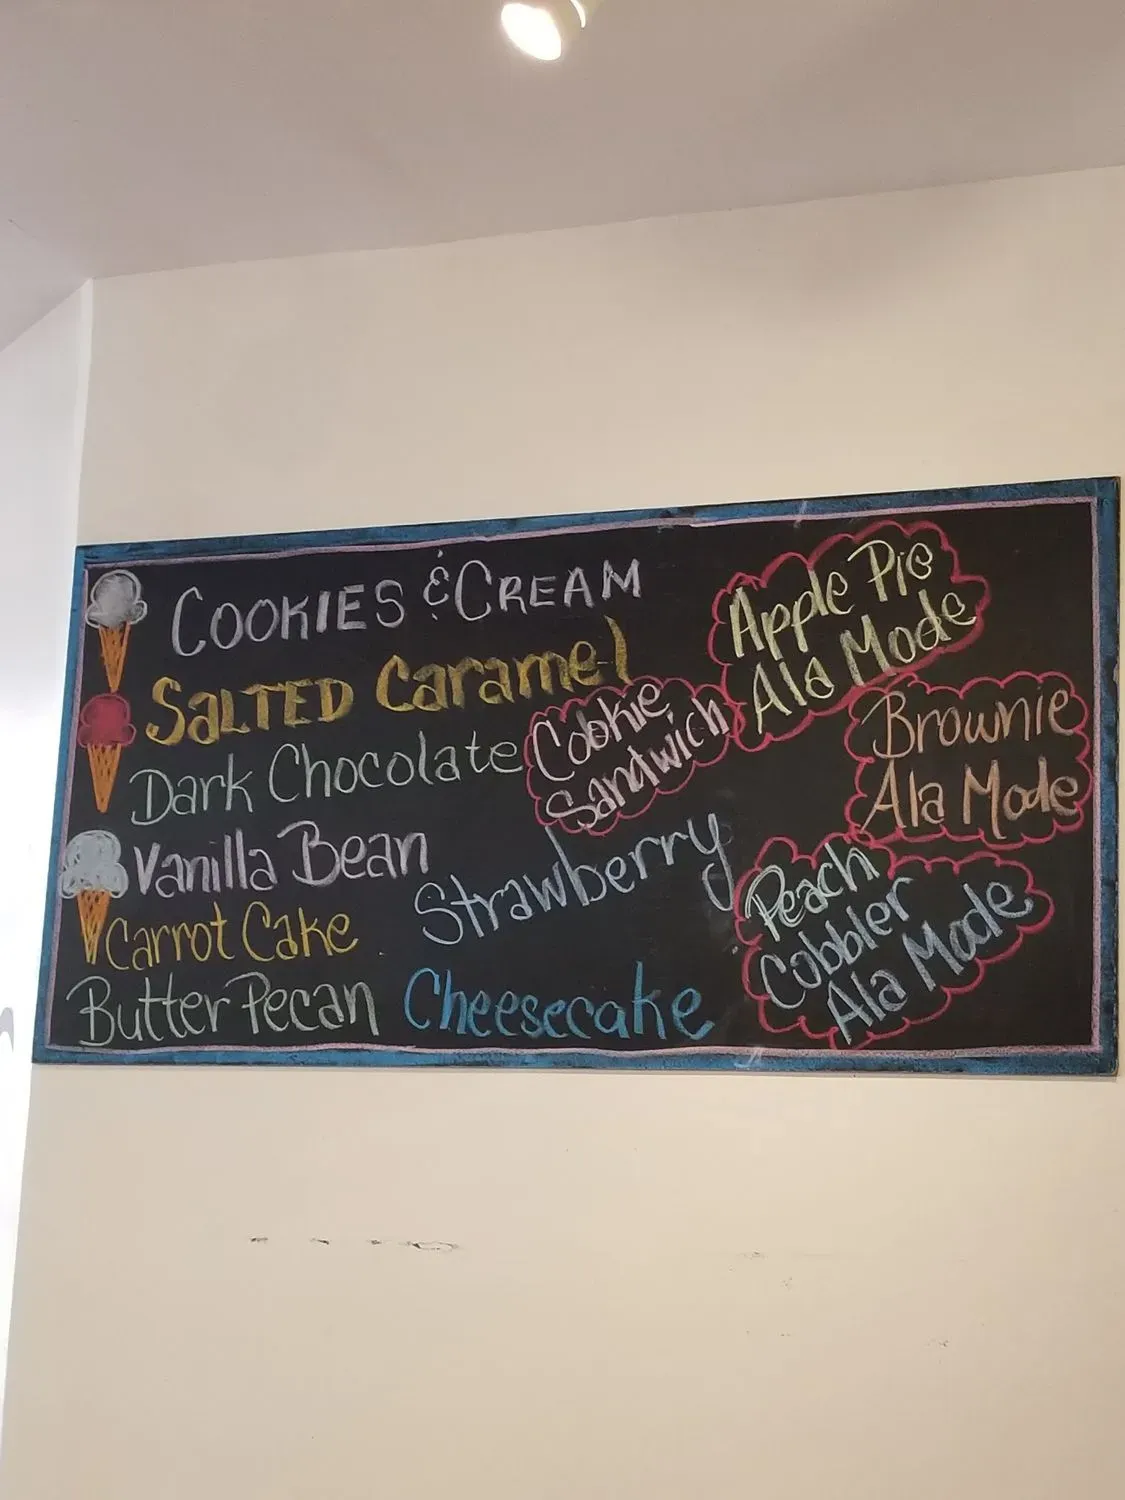 COOKIES & CREAM
SALTED Caramel
Dark Chocolate
Vanilla Bean
Carrot Cake
Butter Pecan
Strawberry
Cheesecake
Cookie
Sandwich
Apple Pie
Ala Mode
Brownie
Ala Mode
Peach
Cobbler
Ala Mode